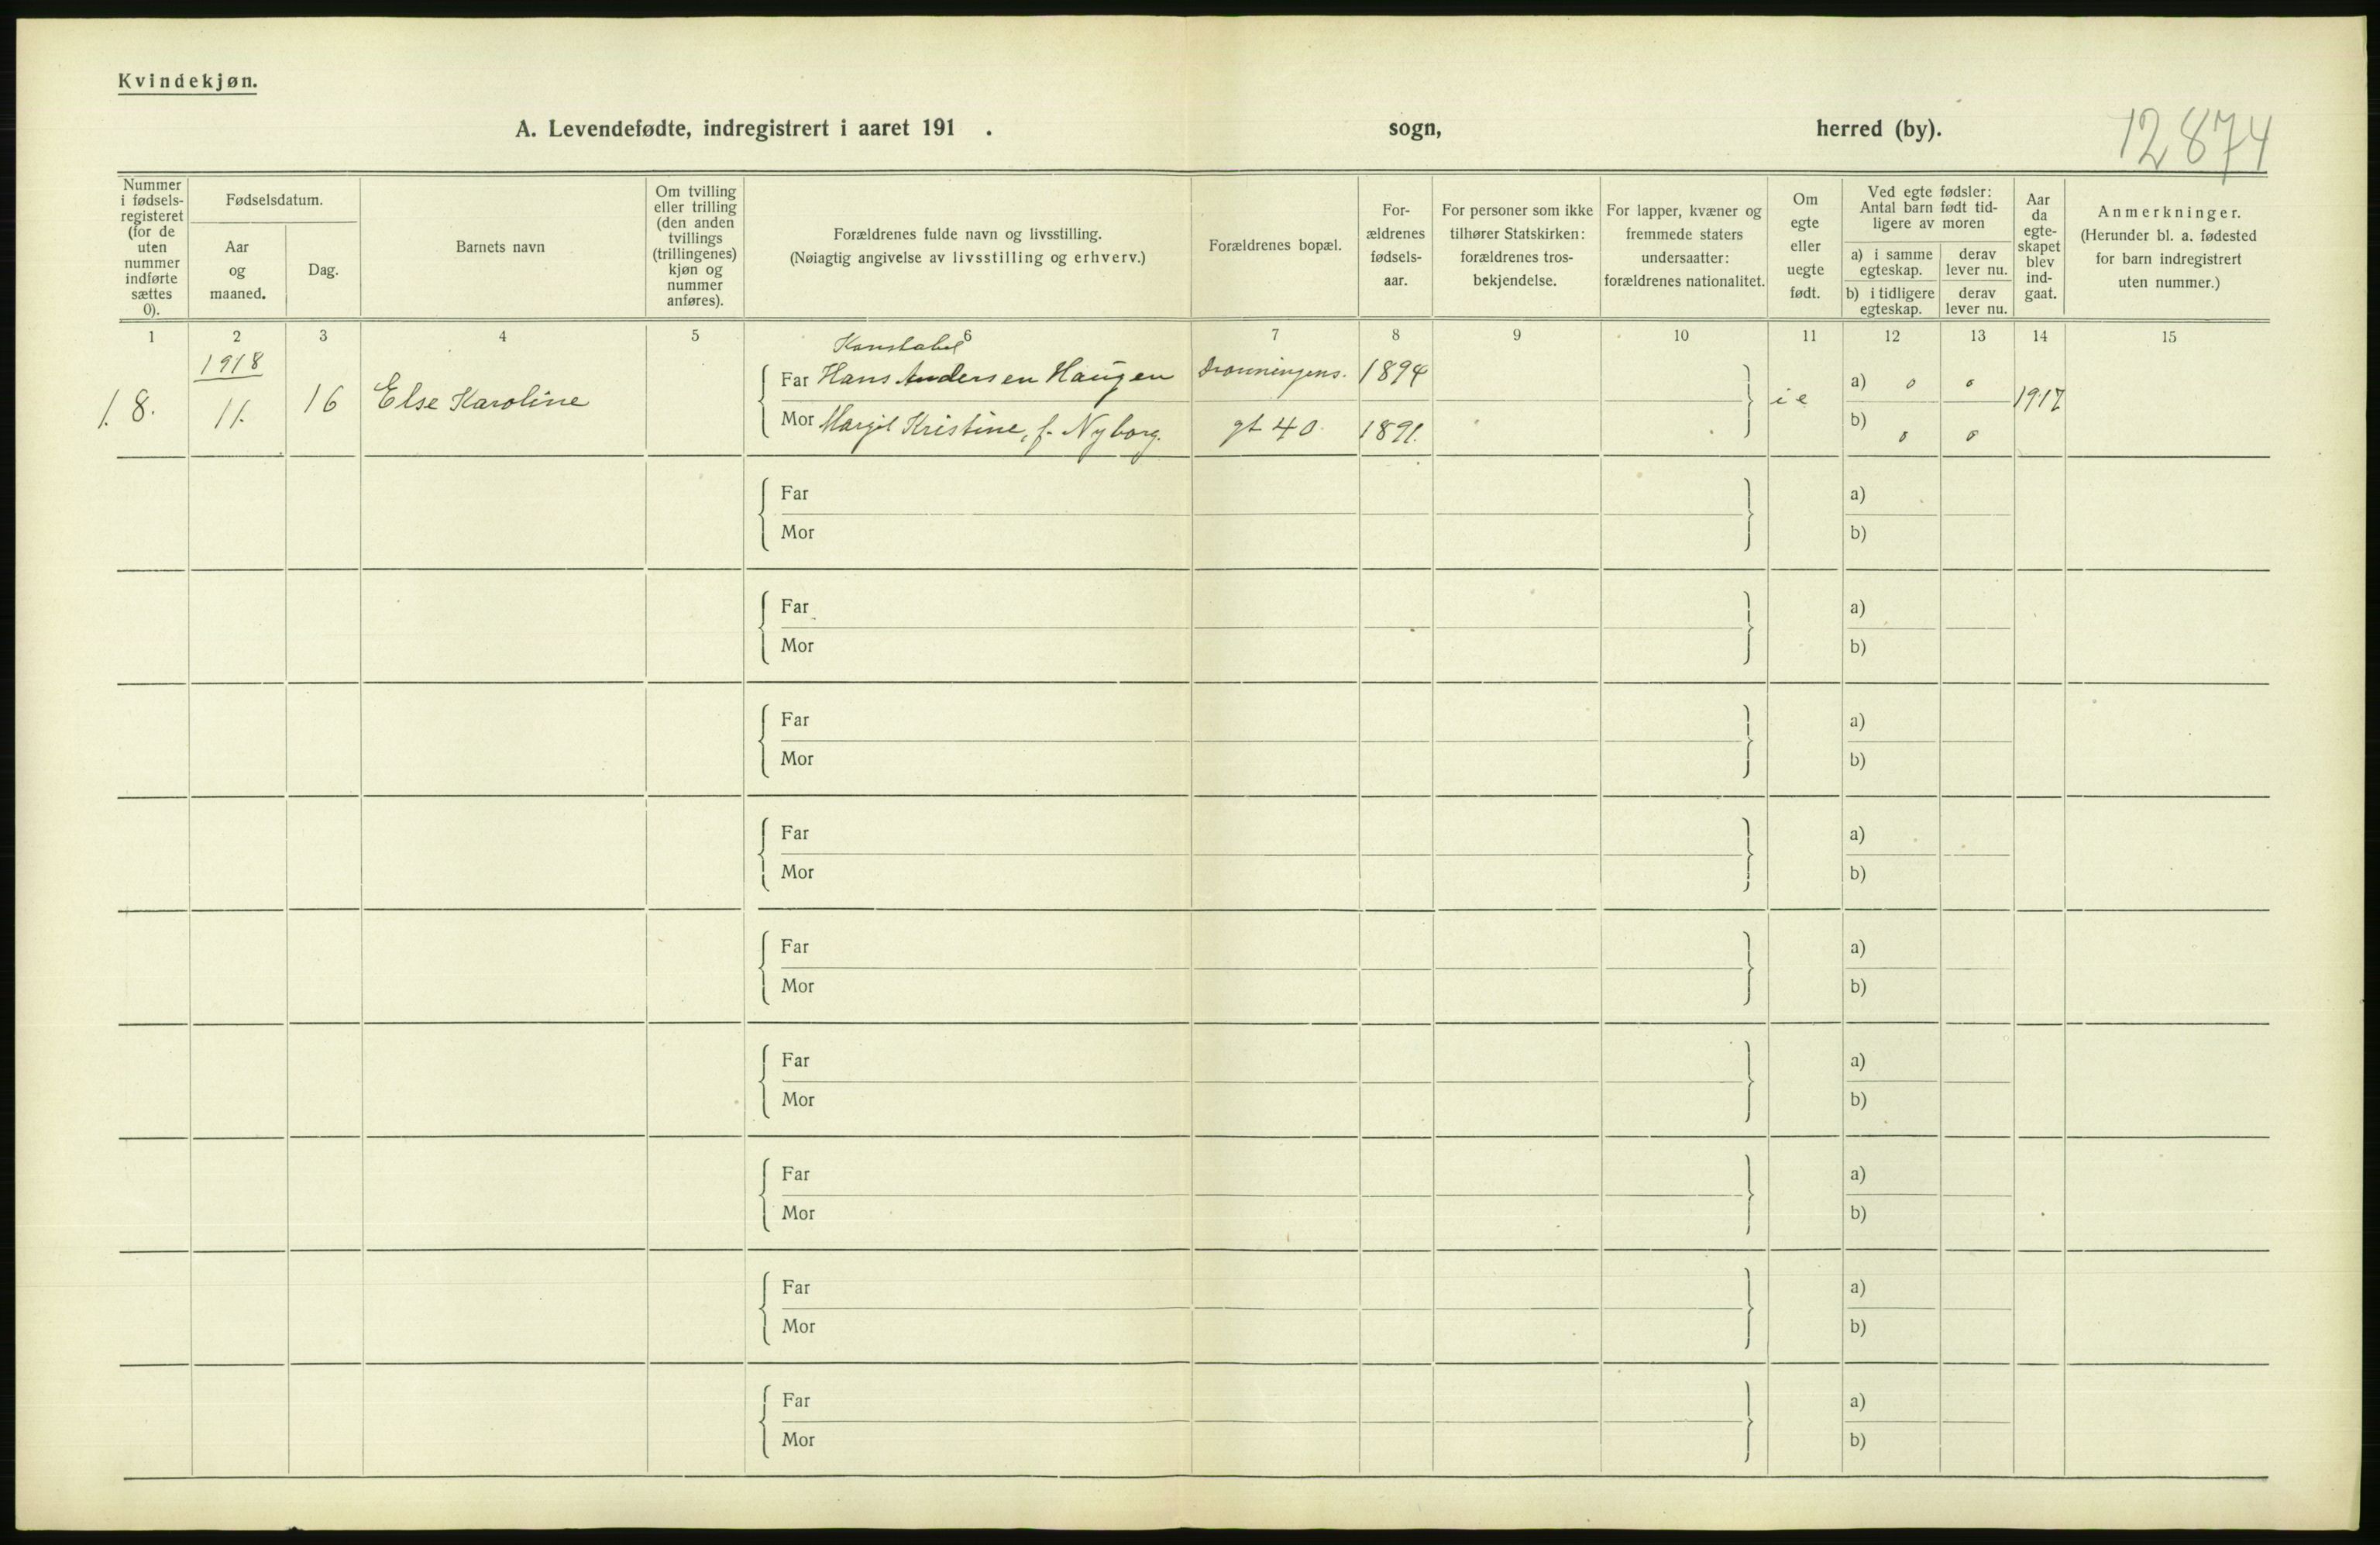 Kvindekjøn.
A. Levendefødte, indregistrert i aaret 191 . sogn, herred (by).
12874
Nummer i fødsels-registeret (for de uten nummer indførte sættes 0).
Fødselsdatum.
Aar og maaned.
Dag.
Barnets navn
Om tvilling eller trilling (den anden tvillings (trillingenes) kjøn og nummer anføres).
Forældrenes fulde navn og livsstilling.
(Nøiagtig angivelse av livsstilling og erhverv.)
Forældrenes bopæl.
For-ældrenes fødsels-aar.
For personer som ikke tilhører Statskirken: forældrenes tros-bekjendelse.
For lapper, kvæner og fremmede staters undersaatter: forældrenes nationalitet.
Om egte eller uegte født.
Ved egte fødsler: Antal barn født tid-ligere av moren
a) i samme egteskap.
derav lever nu.
b) i tidligere egteskap.
derav lever nu.
Aar da egte-skapet blev ind-gaat.
Anmerkninger.
(Herunder bl. a. fødested for barn indregistrert uten nummer.)
1 2 3 4 5 6 7 8 9 10 11 12 13 14 15
1918
Konstabel
Far Hans Andersen Haugen Dronningens. 1894 a) 0 0
1. 8. 11. 16 Else Karoline i e 1917
Mor Margit Kristine, f. Nyborg. gt 40. 1891. b) 0 0
Far a)
Mor b)
Far a)
Mor b)
Far a)
Mor b)
Far a)
Mor b)
Far a)
Mor b)
Far a)
Mor b)
Far a)
Mor b)
Far a)
Mor b)
Far a)
Mor b)